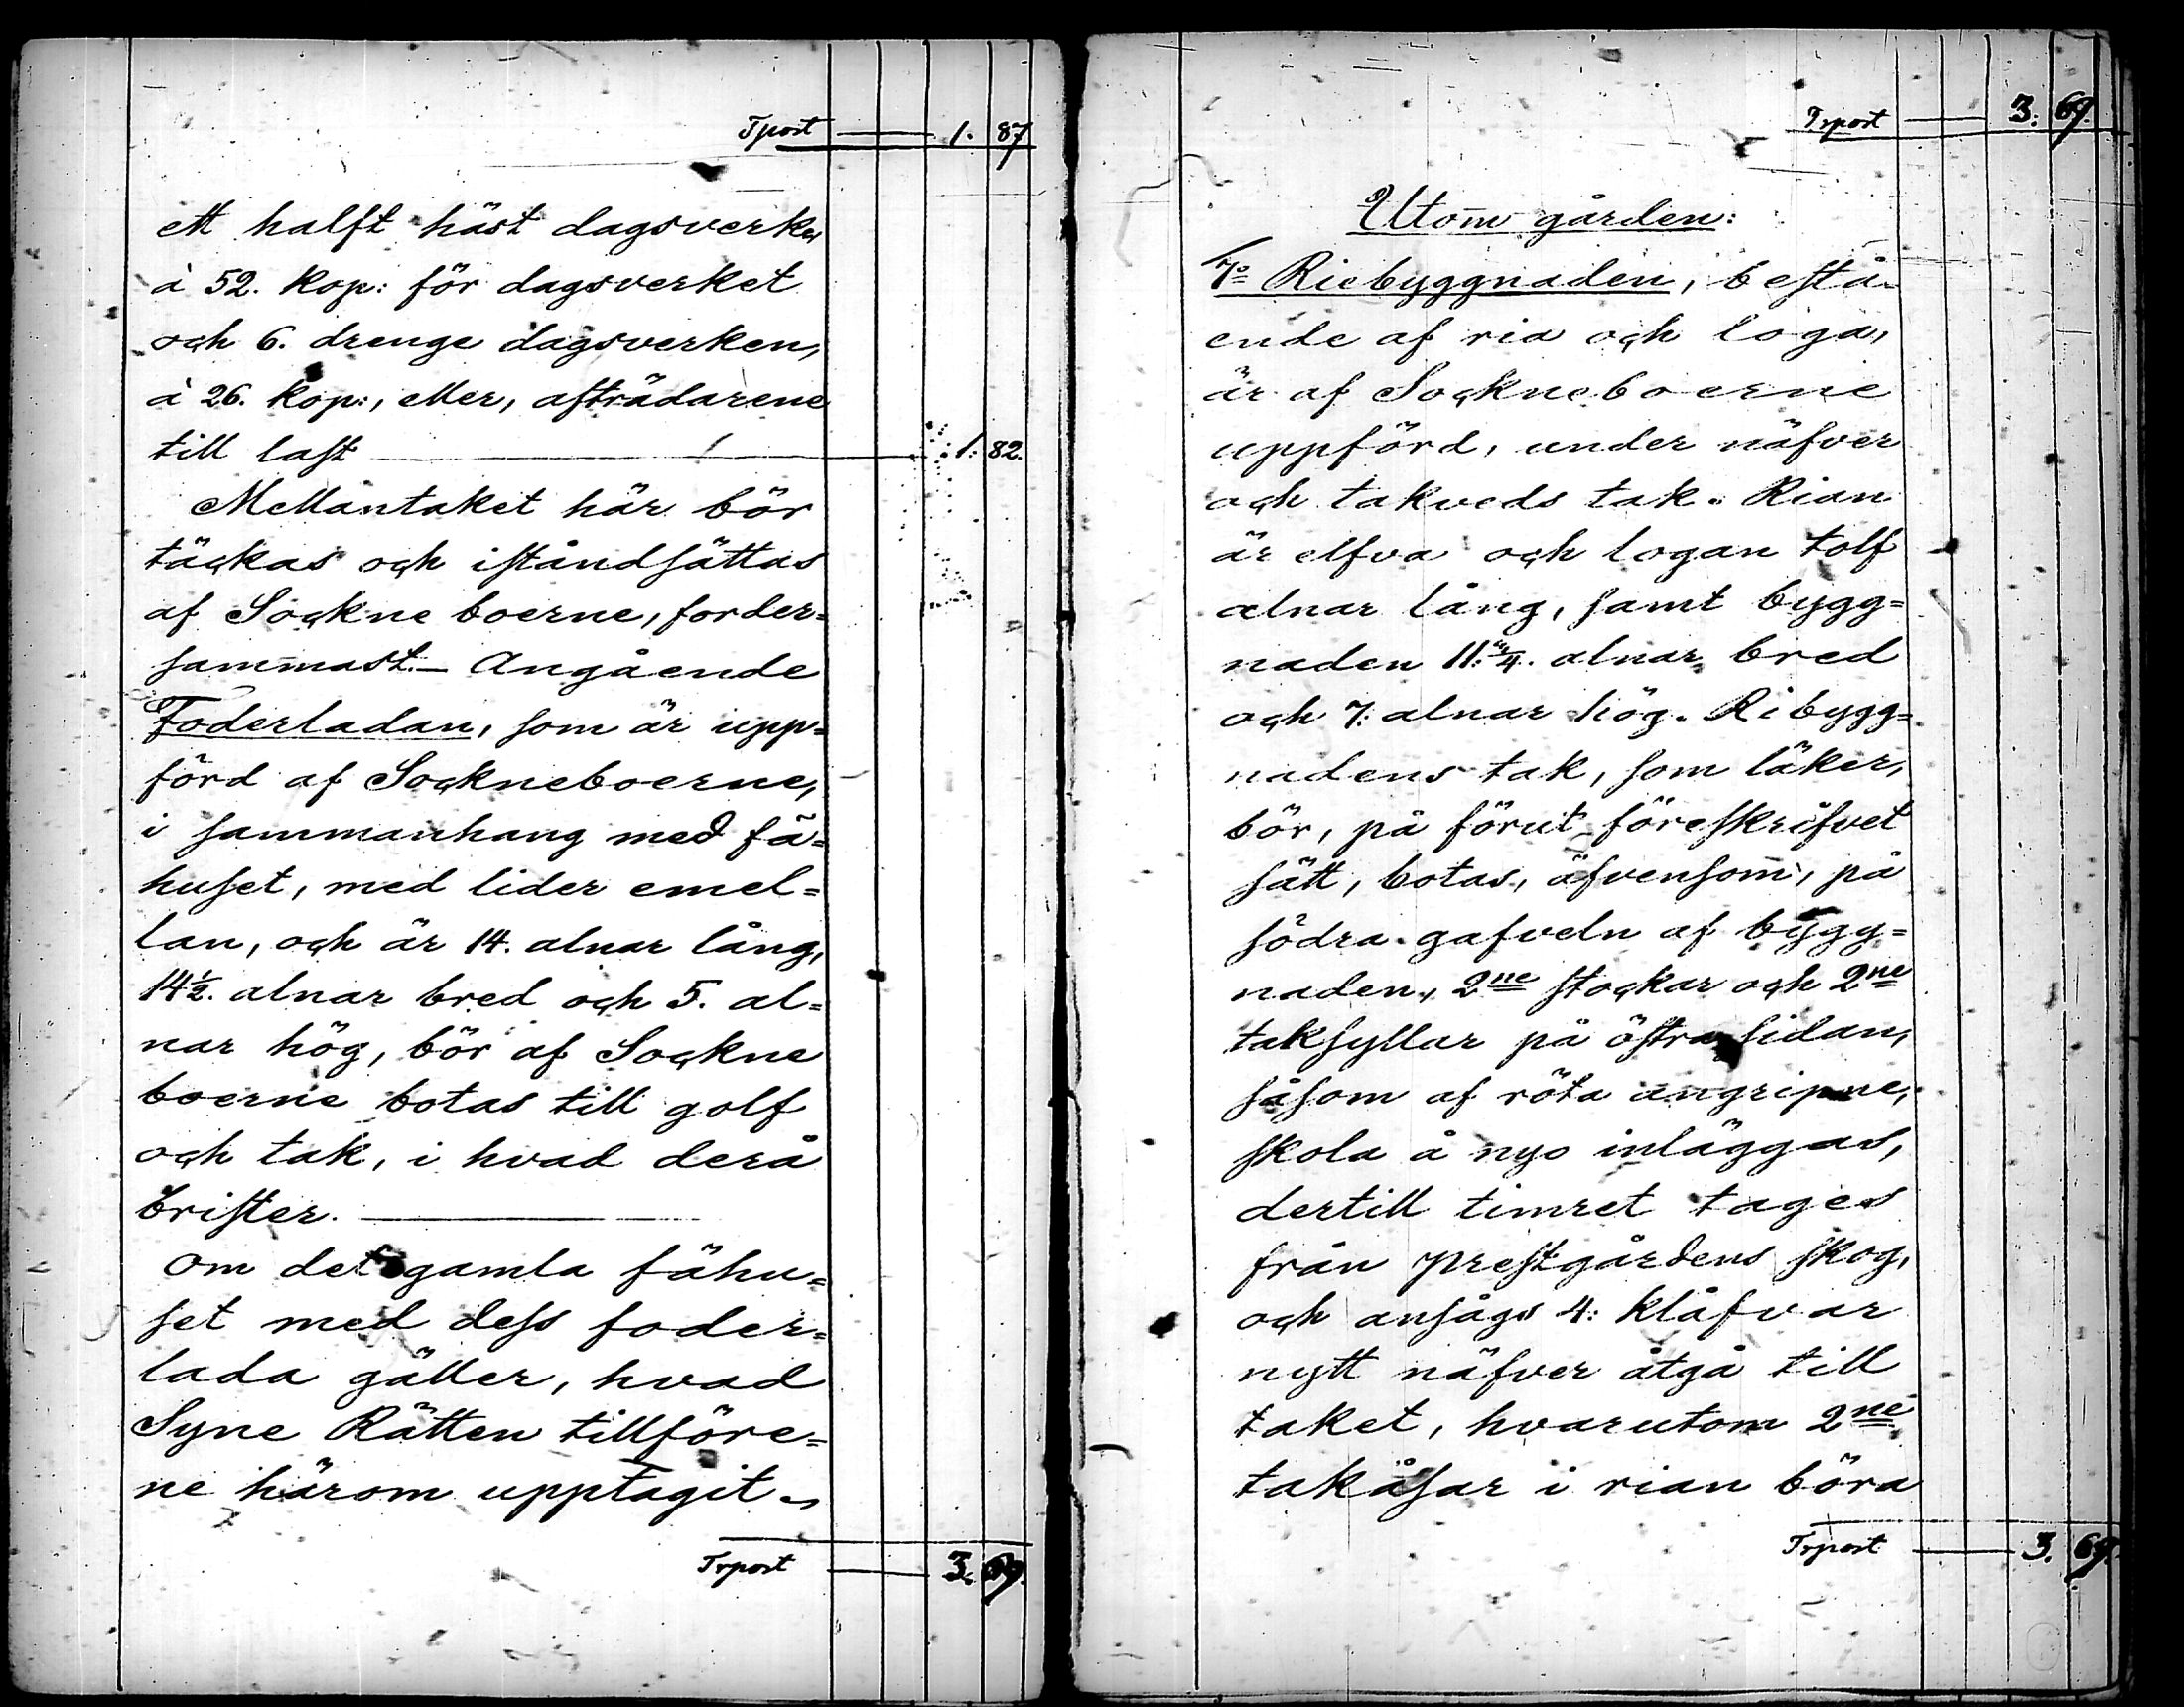 Tpost 1. 87
ett halft häst dagsverke,
à 52. kop: för dagsverket
och 6. drenge dagsverken,
à 26. kop:, eller, afträdarene
till last 1. 82.
Mellantaket här bör
täckas och iståndsättas
af Sockne boerne, forder=
sammast. – Angående
Foderladan, som är upp=
förd af Sockneboerne,
i sammanhang med fä=
huset, med lider emel=
lan, och är 14. alnar lång,
14½. alnar bred och 5. al=
nar hög, bör af Sockne
boerne botas till golf
och tak, i hvad derå
brister.
Om det gamla fähu=
set med dess foder=
lada gäller, hvad
Syne Rätten tillföre=
ne härom upptagit.
Trpost 3. 69.
Trpost 3. 69.
Utom gården:
7o Riebyggnaden, bestå=
ende af ria och loga,
är af Sockneboerne
uppförd, under näfver
och takveds tak. Rian
är elfva och logan tolf
alnar lång, samt bygg=
naden 11:¾. alnar bred
och 7: alnar hög. Ribygg=
nadens tak, som läker,
bör, på förut föreskrifvet
sätt, botas, äfvensom, på
södra gafveln af bygg=
naden, 2ne stockar och 2ne
taksyllar på östra sidan,
såsom af röta angripne,
skola å nyo inläggas,
dertill timret tages
från prestgårdens skog,
och ansågs 4: klåfvar
nytt näfver åtgå till
taket, hvarutom 2ne
takåsar i rian böra
Trpost 3. 69.